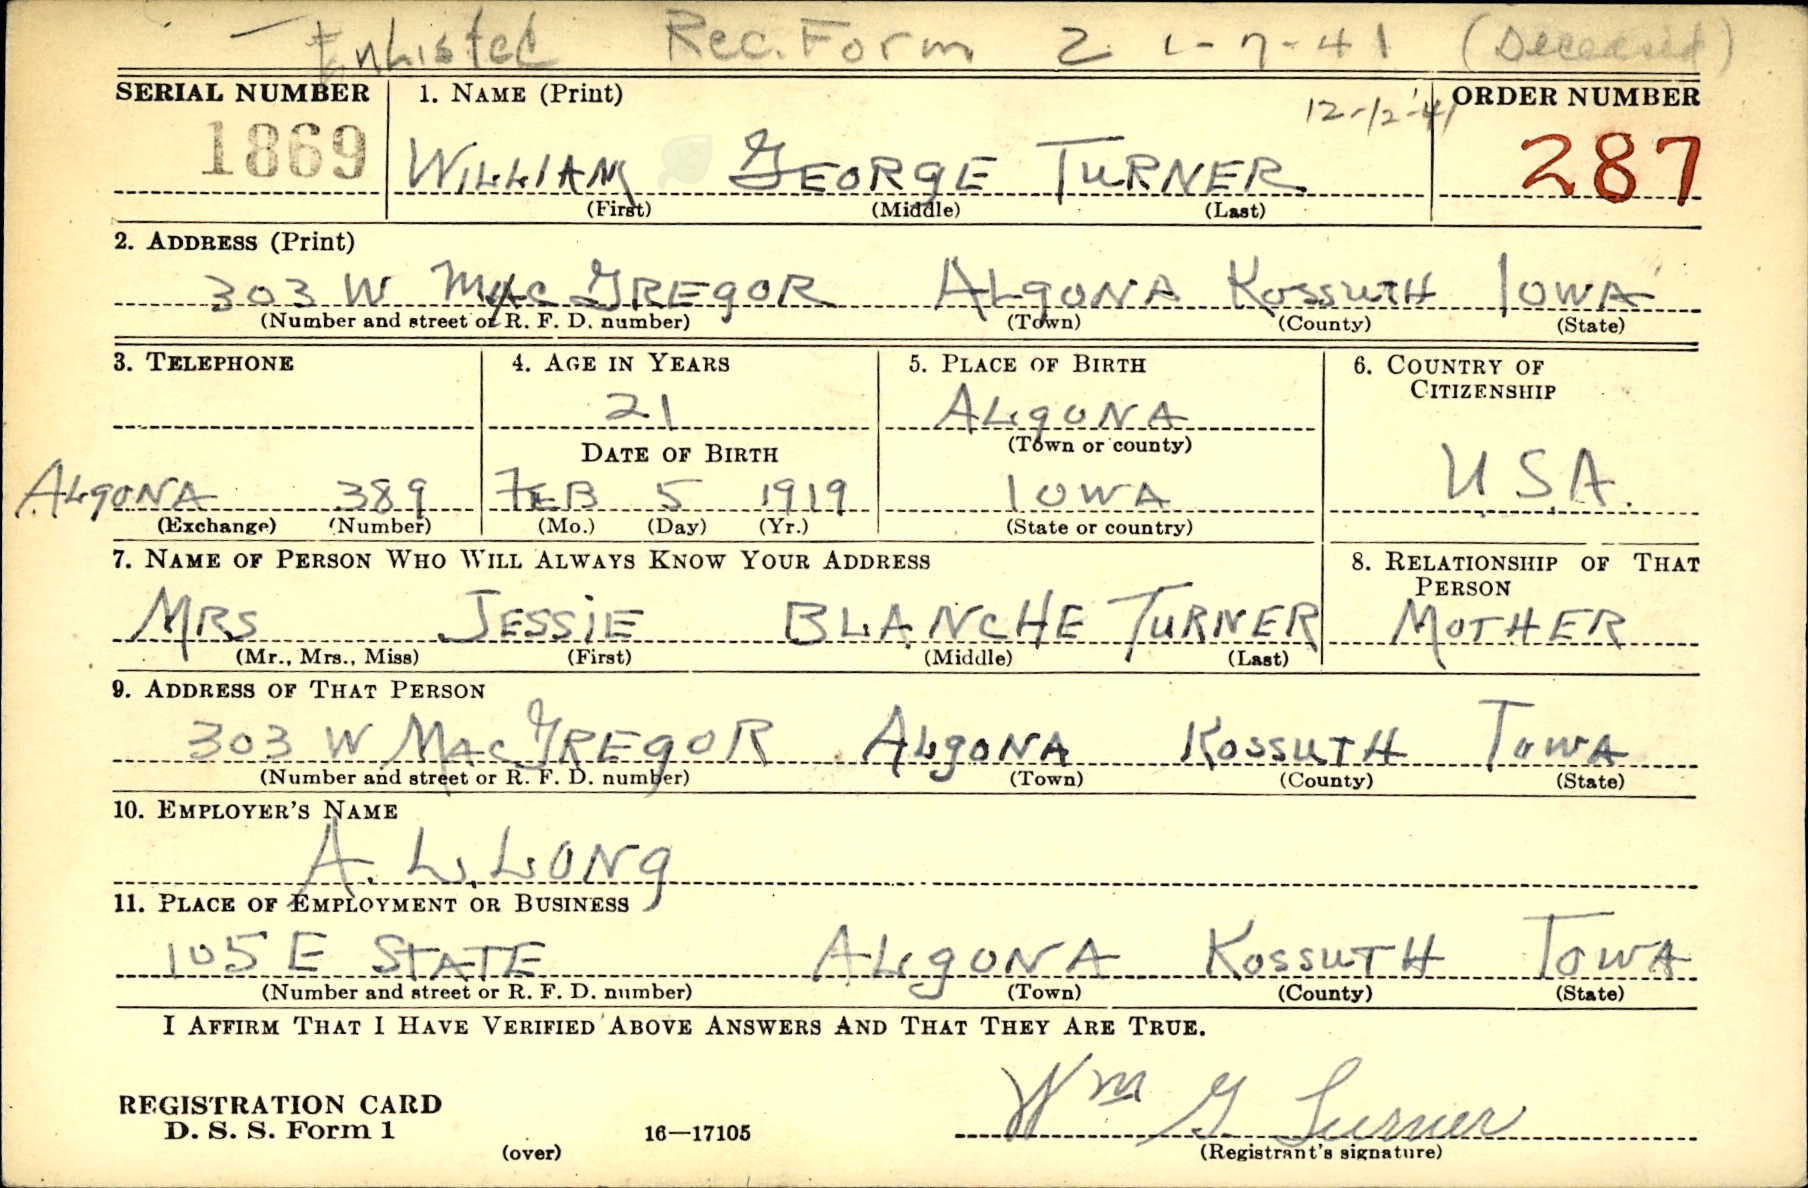 Enlisted Rec. Form 2 1-7-41 (Deceased)
SERIAL NUMBER 1. NAME (Print) 12-12-41 ORDER NUMBER
1869 WILLIAM GEORGE TURNER 287
(First) (Middle) (Last)
2. ADDRESS (Print)
303 W MACGREGOR ALGONA KOSSUTH IOWA
(Number and street or R. F. D. number) (Town) (County) (State)
3. TELEPHONE 4. AGE IN YEARS 5. PLACE OF BIRTH 6. COUNTRY OF CITIZENSHIP
21 ALGONA
DATE OF BIRTH (Town or county)
ALGONA 389 FEB 5 1919 IOWA U.S.A.
(Exchange) (Number) (Mo.) (Day) (Yr.) (State or country)
7. NAME OF PERSON WHO WILL ALWAYS KNOW YOUR ADDRESS 8. RELATIONSHIP OF THAT PERSON
MRS JESSIE BLANCHE TURNER MOTHER
(Mr., Mrs., Miss) (First) (Middle) (Last)
9. ADDRESS OF THAT PERSON
303 W MACGREGOR ALGONA KOSSUTH IOWA
(Number and street or R. F. D. number) (Town) (County) (State)
10. EMPLOYER'S NAME
A. L. LONG
11. PLACE OF EMPLOYMENT OR BUSINESS
105 E STATE ALGONA KOSSUTH IOWA
(Number and street or R. F. D. number) (Town) (County) (State)
I AFFIRM THAT I HAVE VERIFIED ABOVE ANSWERS AND THAT THEY ARE TRUE.
REGISTRATION CARD
D. S. S. Form 1 16—17105 Wm G. Turner
(over) (Registrant's signature)